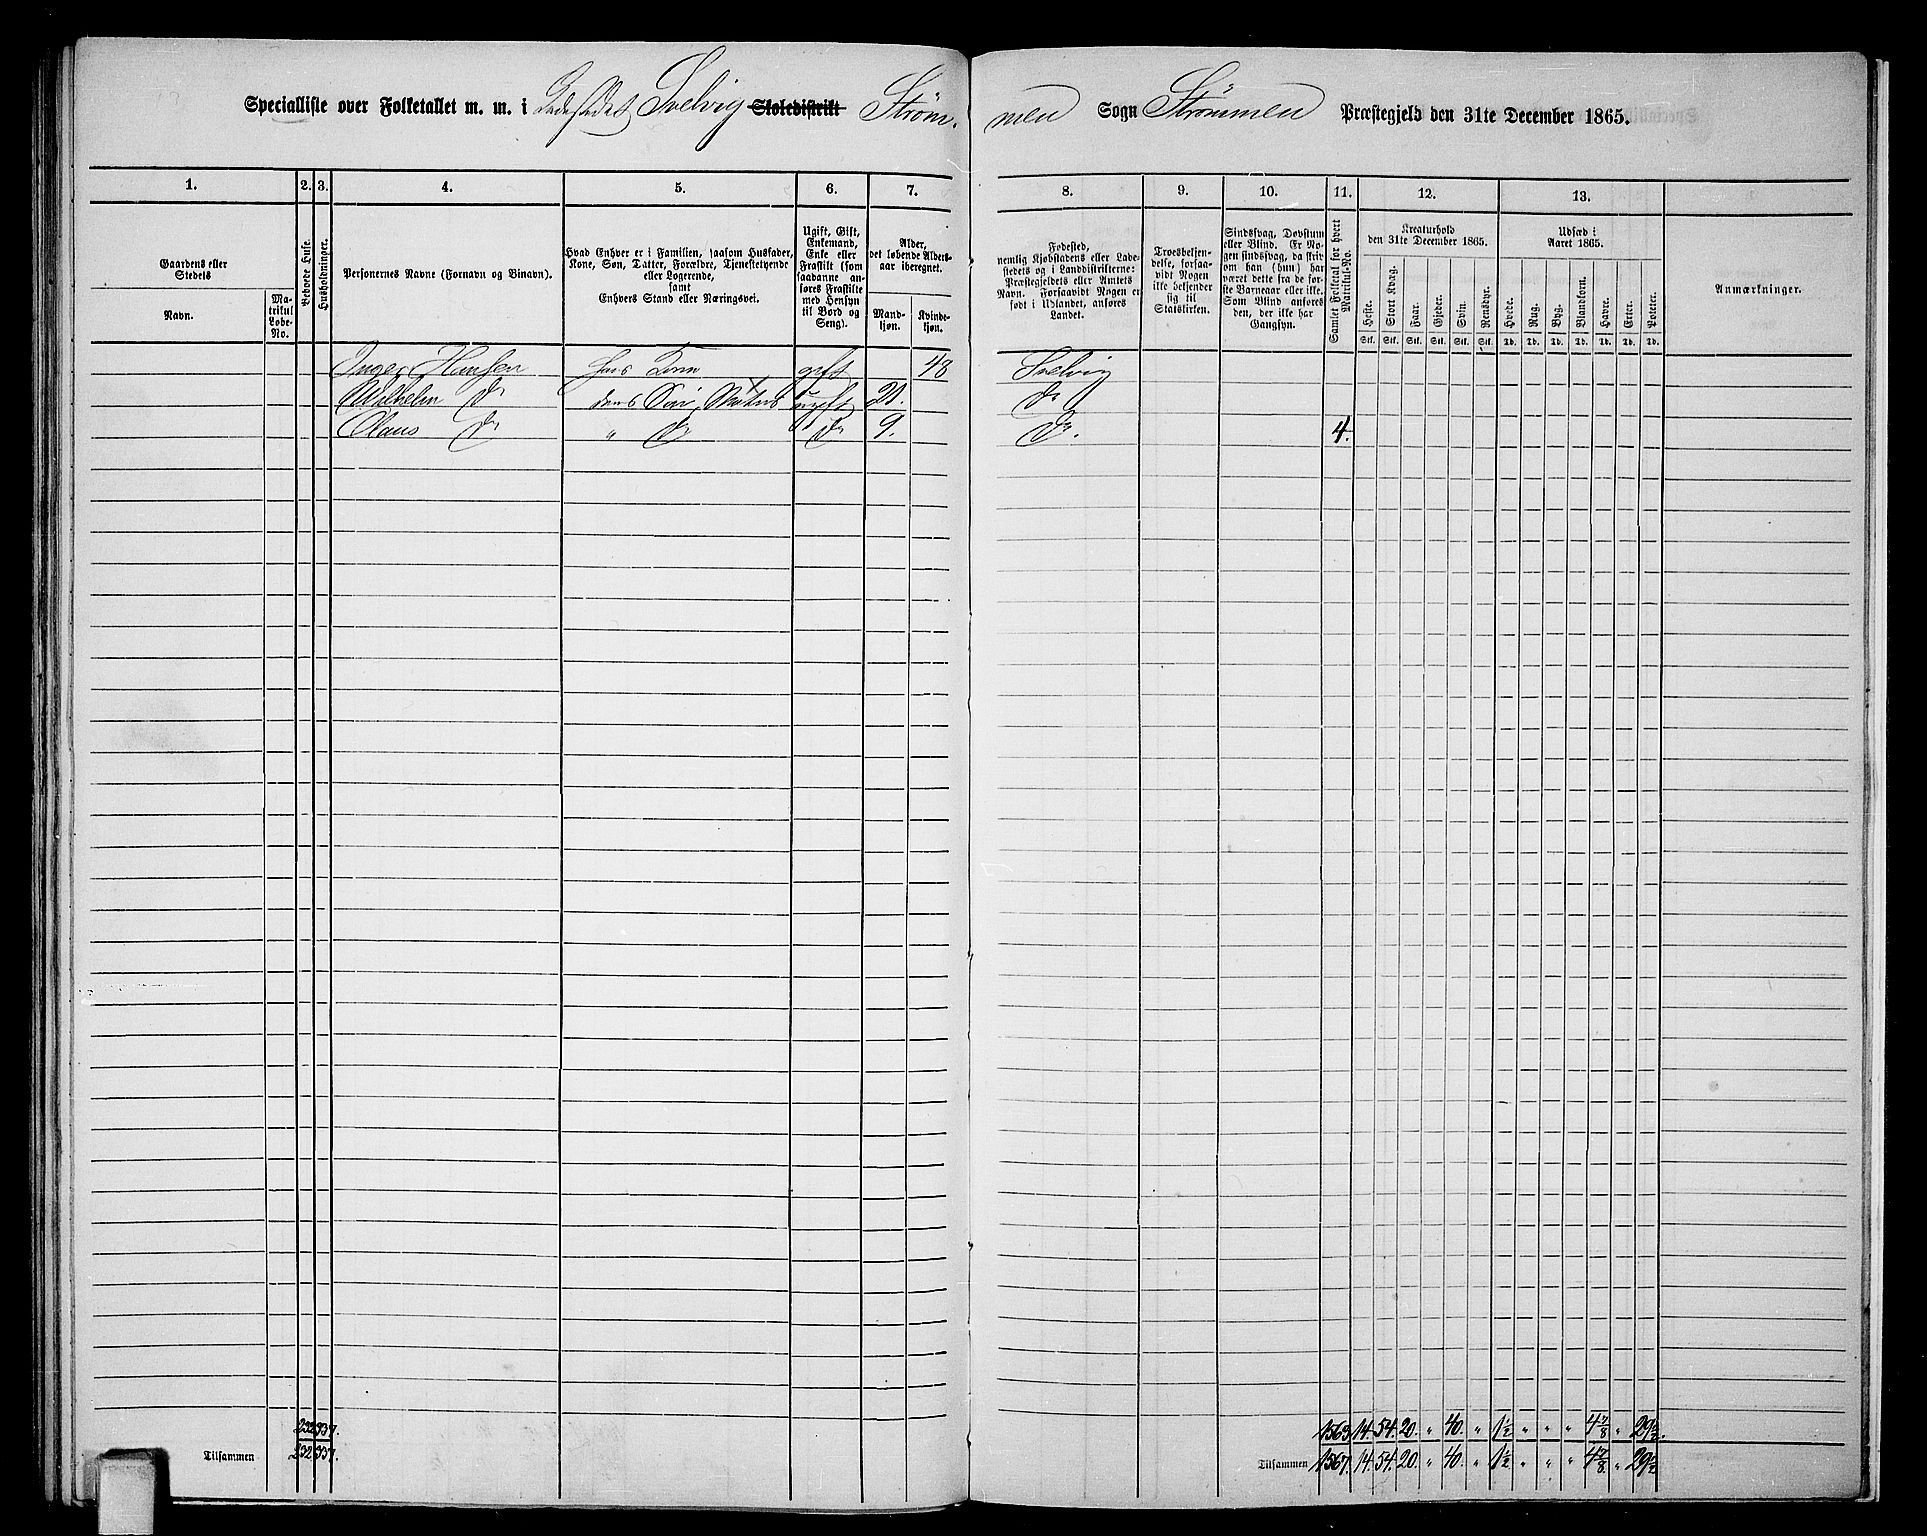 Specialliste over Folketallet m. m. i Ladestedet Svelvig Skoledistrikt Ström-
men Sogn Strömmen Præstegjeld den 31te December 1865.
1. 2. 3. 4. 5. 6. 7. 8. 9. 10. 11. 12. 13.
Gaardens eller
Stedets
Navn.
Ma-
trikul
Løbe-
No.
Beboede Huse.
Husholdninger.
Personernes Navne (Fornavn og Binavn).
Hvad Enhver er i Familien, saasom Husfader,
Kone, Søn, Datter, Forældre, Tjenestetyende
eller Logerende,
samt
Enhvers Stand eller Næringsvei.
Ugift, Gift,
Enkemand,
Enke eller
Fraskilt (som
saadanne an-
føres Fraskilte
med Hensyn
til Bord og
Seng).
Alder,
det løbende Alders-
aar iberegnet.
Mand-
kjøn.
Kvinde-
kjøn.
Fødested,
nemlig Kjøbstadens eller Lade-
stedets og i Landdistrikterne:
Præstegjeldets eller Amtets
Navn. Forsaavidt Nogen er
født i Udlandet, anføres
Landet.
Troesbekjen-
delse, forsaa-
vidt Nogen
ikke bekjender
sig til
Statskirken.
Sindssvag, Døvstum
eller Blind. Er No-
gen sindssvag, da skriv
om han (hun) har
været dette fra de før-
ste Barneaar eller ikke.
Som Blind anføres
den, der ikke har
Gangsyn.
Samlet Folketal for hvert
Matrikul-No.
Kreaturhold
den 31te December 1865.
Heste.
Stort Kvæg.
Faar.
Gjeder.
Svin.
Rensdyr.
Stk. Stk. Stk. Stk. Stk. Stk.
Udsæd i
Aaret 1865.
Hvede.
Rug.
Byg.
Blandkorn.
Havre.
Erter.
Poteter.
Td. Td. Td. Td. Td. Td. Td.
Anmærkninger.
Inger Hansen hans Kone gift 48 Svelvig
Wilhelm do deres Søn, Matros ugift 21. do
Olaus do " do do 9. do. 4.
232 337. 1563 14. 54. 20. " 40. " 1½ " " " 4⅞ " 29½.
Tilsammen 232 337. Tilsammen 1567. 14. 54. 20. " 40. " 1½ " " " 4⅞ " 29½